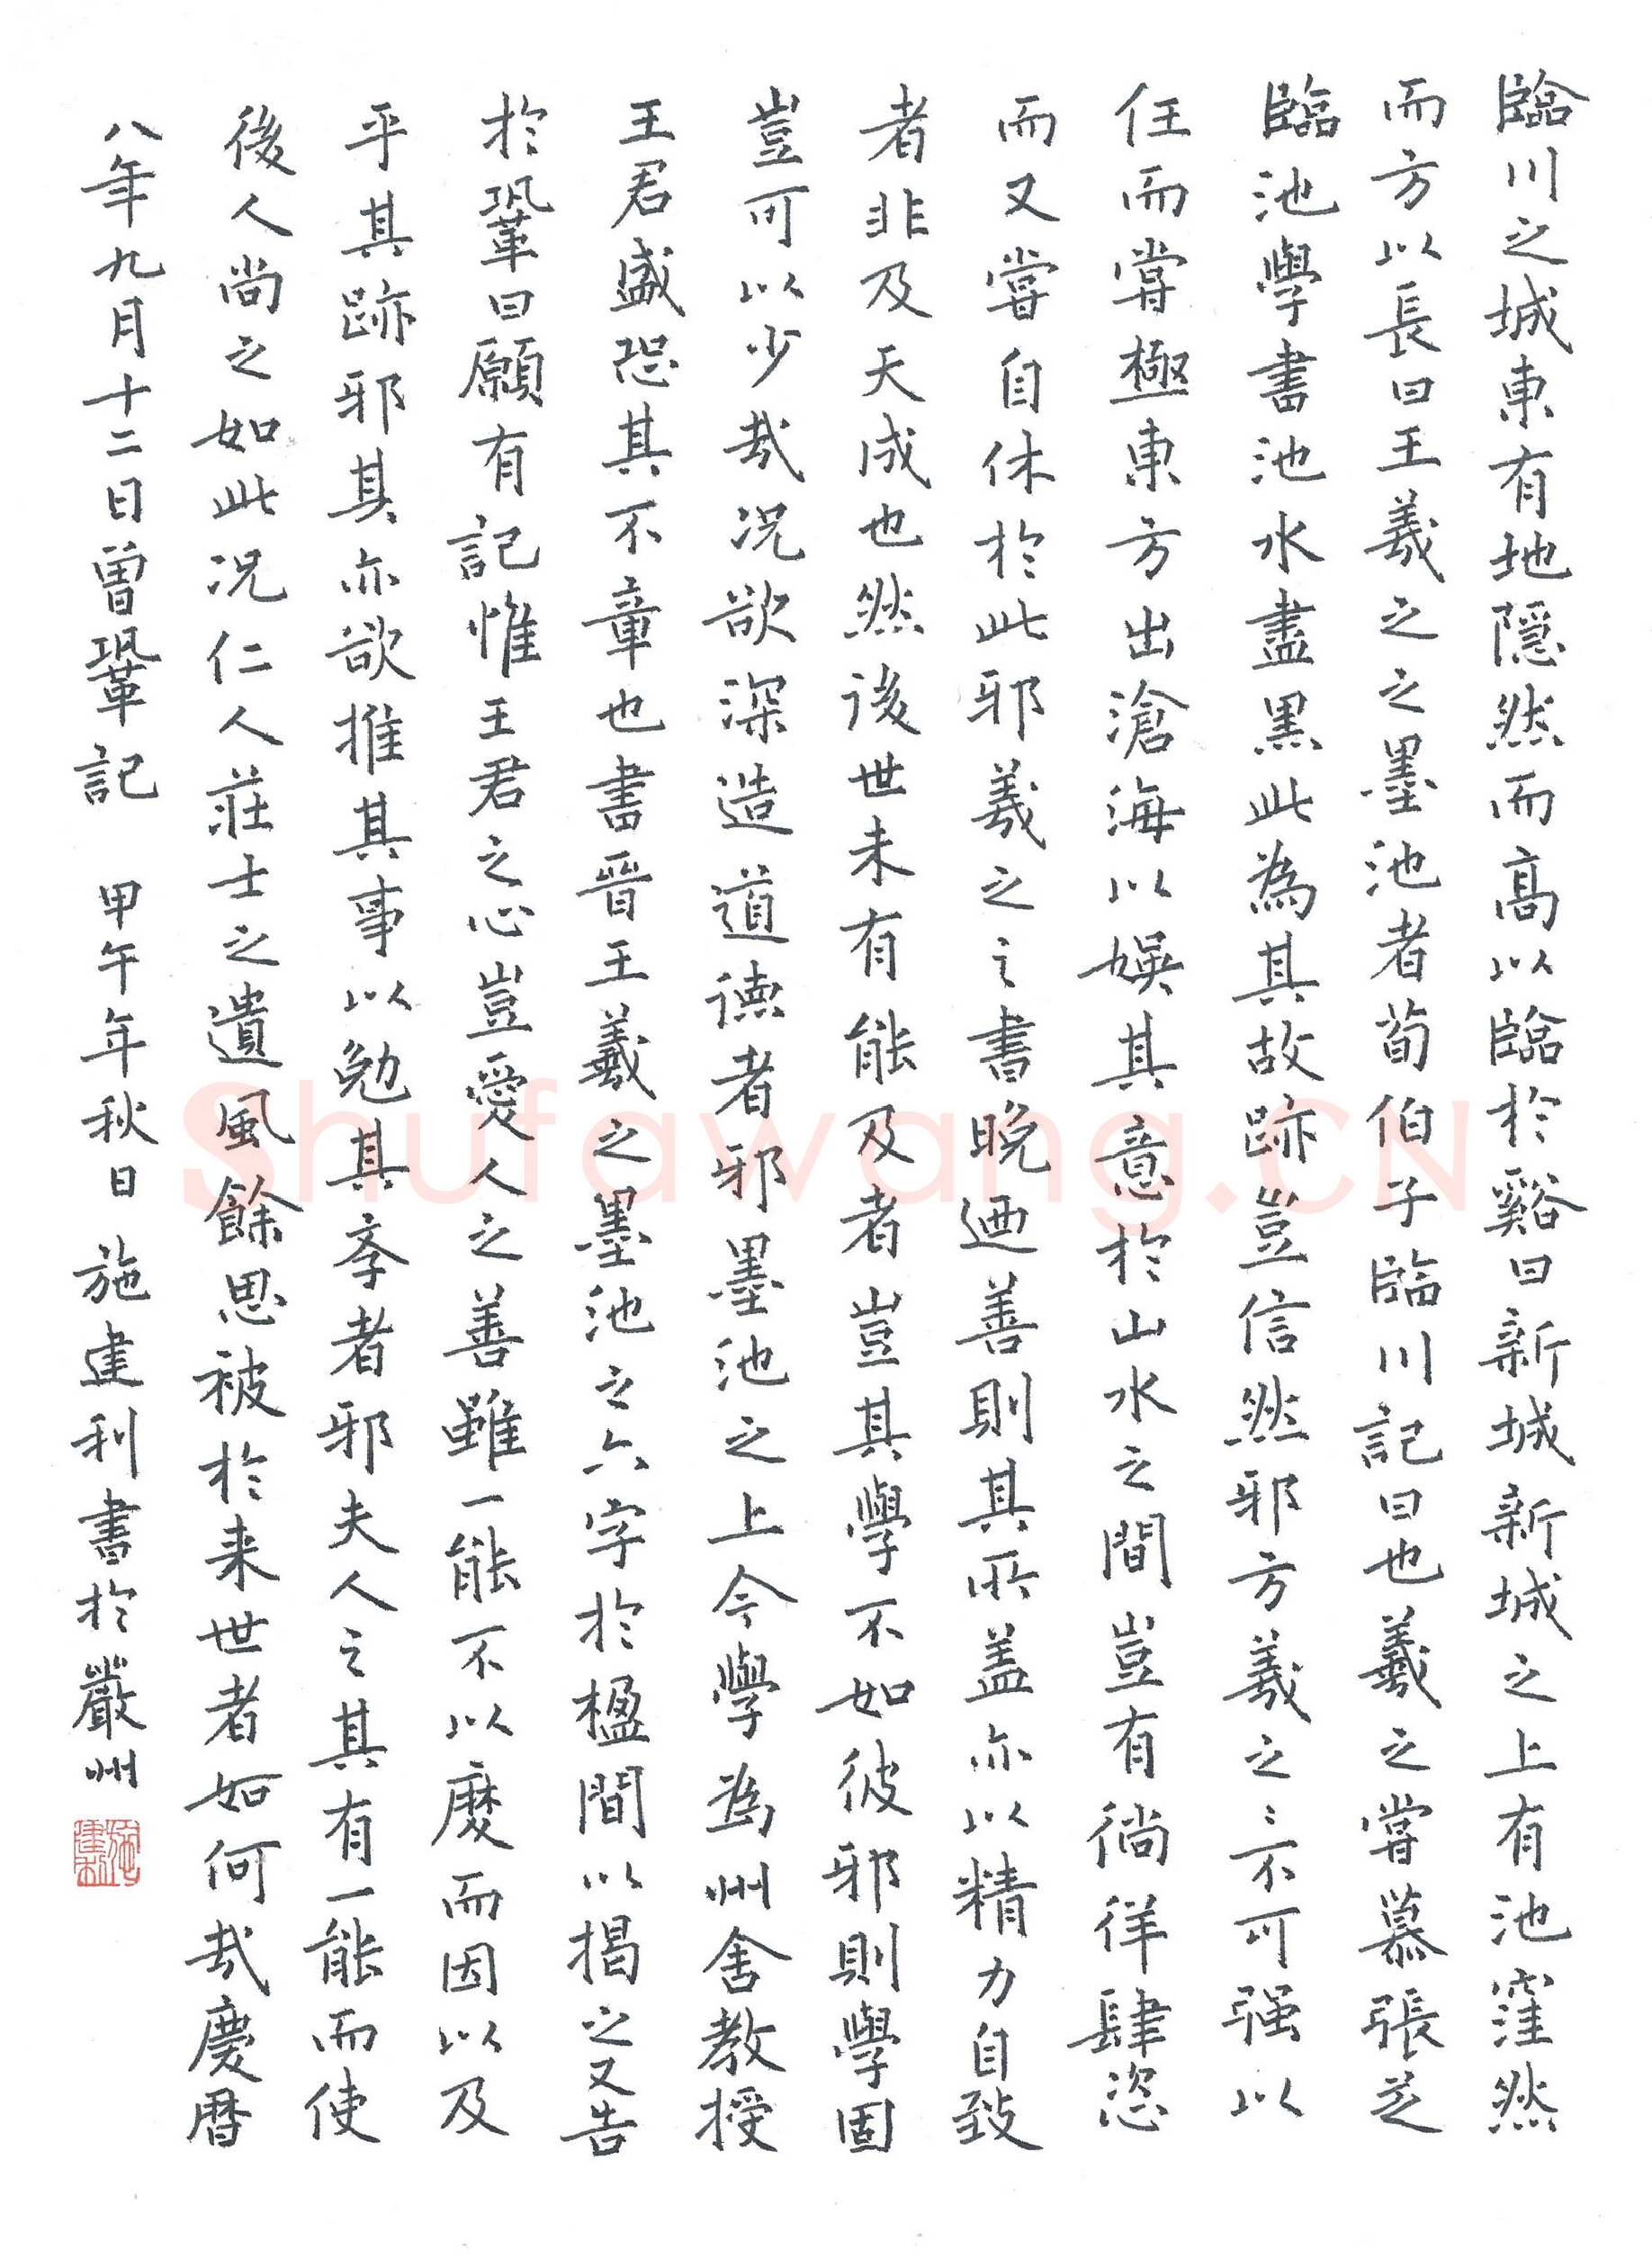 臨川之城東有地隱然而高以臨於谿曰新城新城之上有池窪然
而方以長曰王羲之之墨池者荀伯子臨川記曰也羲之嘗慕張芝
臨池學書池水盡黑此為其故跡豈信然邪方羲之之不可强以
任而嘗極東方出滄海以娛其意於山水之間豈有徜徉肆恣
而又嘗自休於此邪羲之之書晚迺善則其所盖亦以精力自致
者非及天成也然後世未有能及者豈其學不如彼邪則學固
豈可以少哉况欲深造道德者邪墨池之上今學為州舍教授
王君盛恐其不章也書晉王羲之墨池之六字於楹間以揭之又告
於鞏曰願有記惟王君之心豈愛人之善雖一能不以廢而因以及
乎其跡邪其亦欲推其事以勉其斈者邪夫人之其有一能而使
後人尚之如此况仁人莊士之遺風餘思被於来世者如何哉慶曆
八年九月十二日曾鞏記 甲午年秋日 施建利書於嚴州
施建利
Shufawang.CN